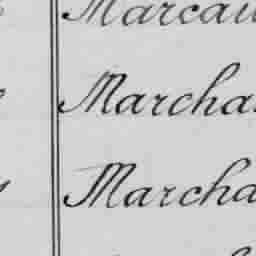 Marcau
Marcha
Marcha